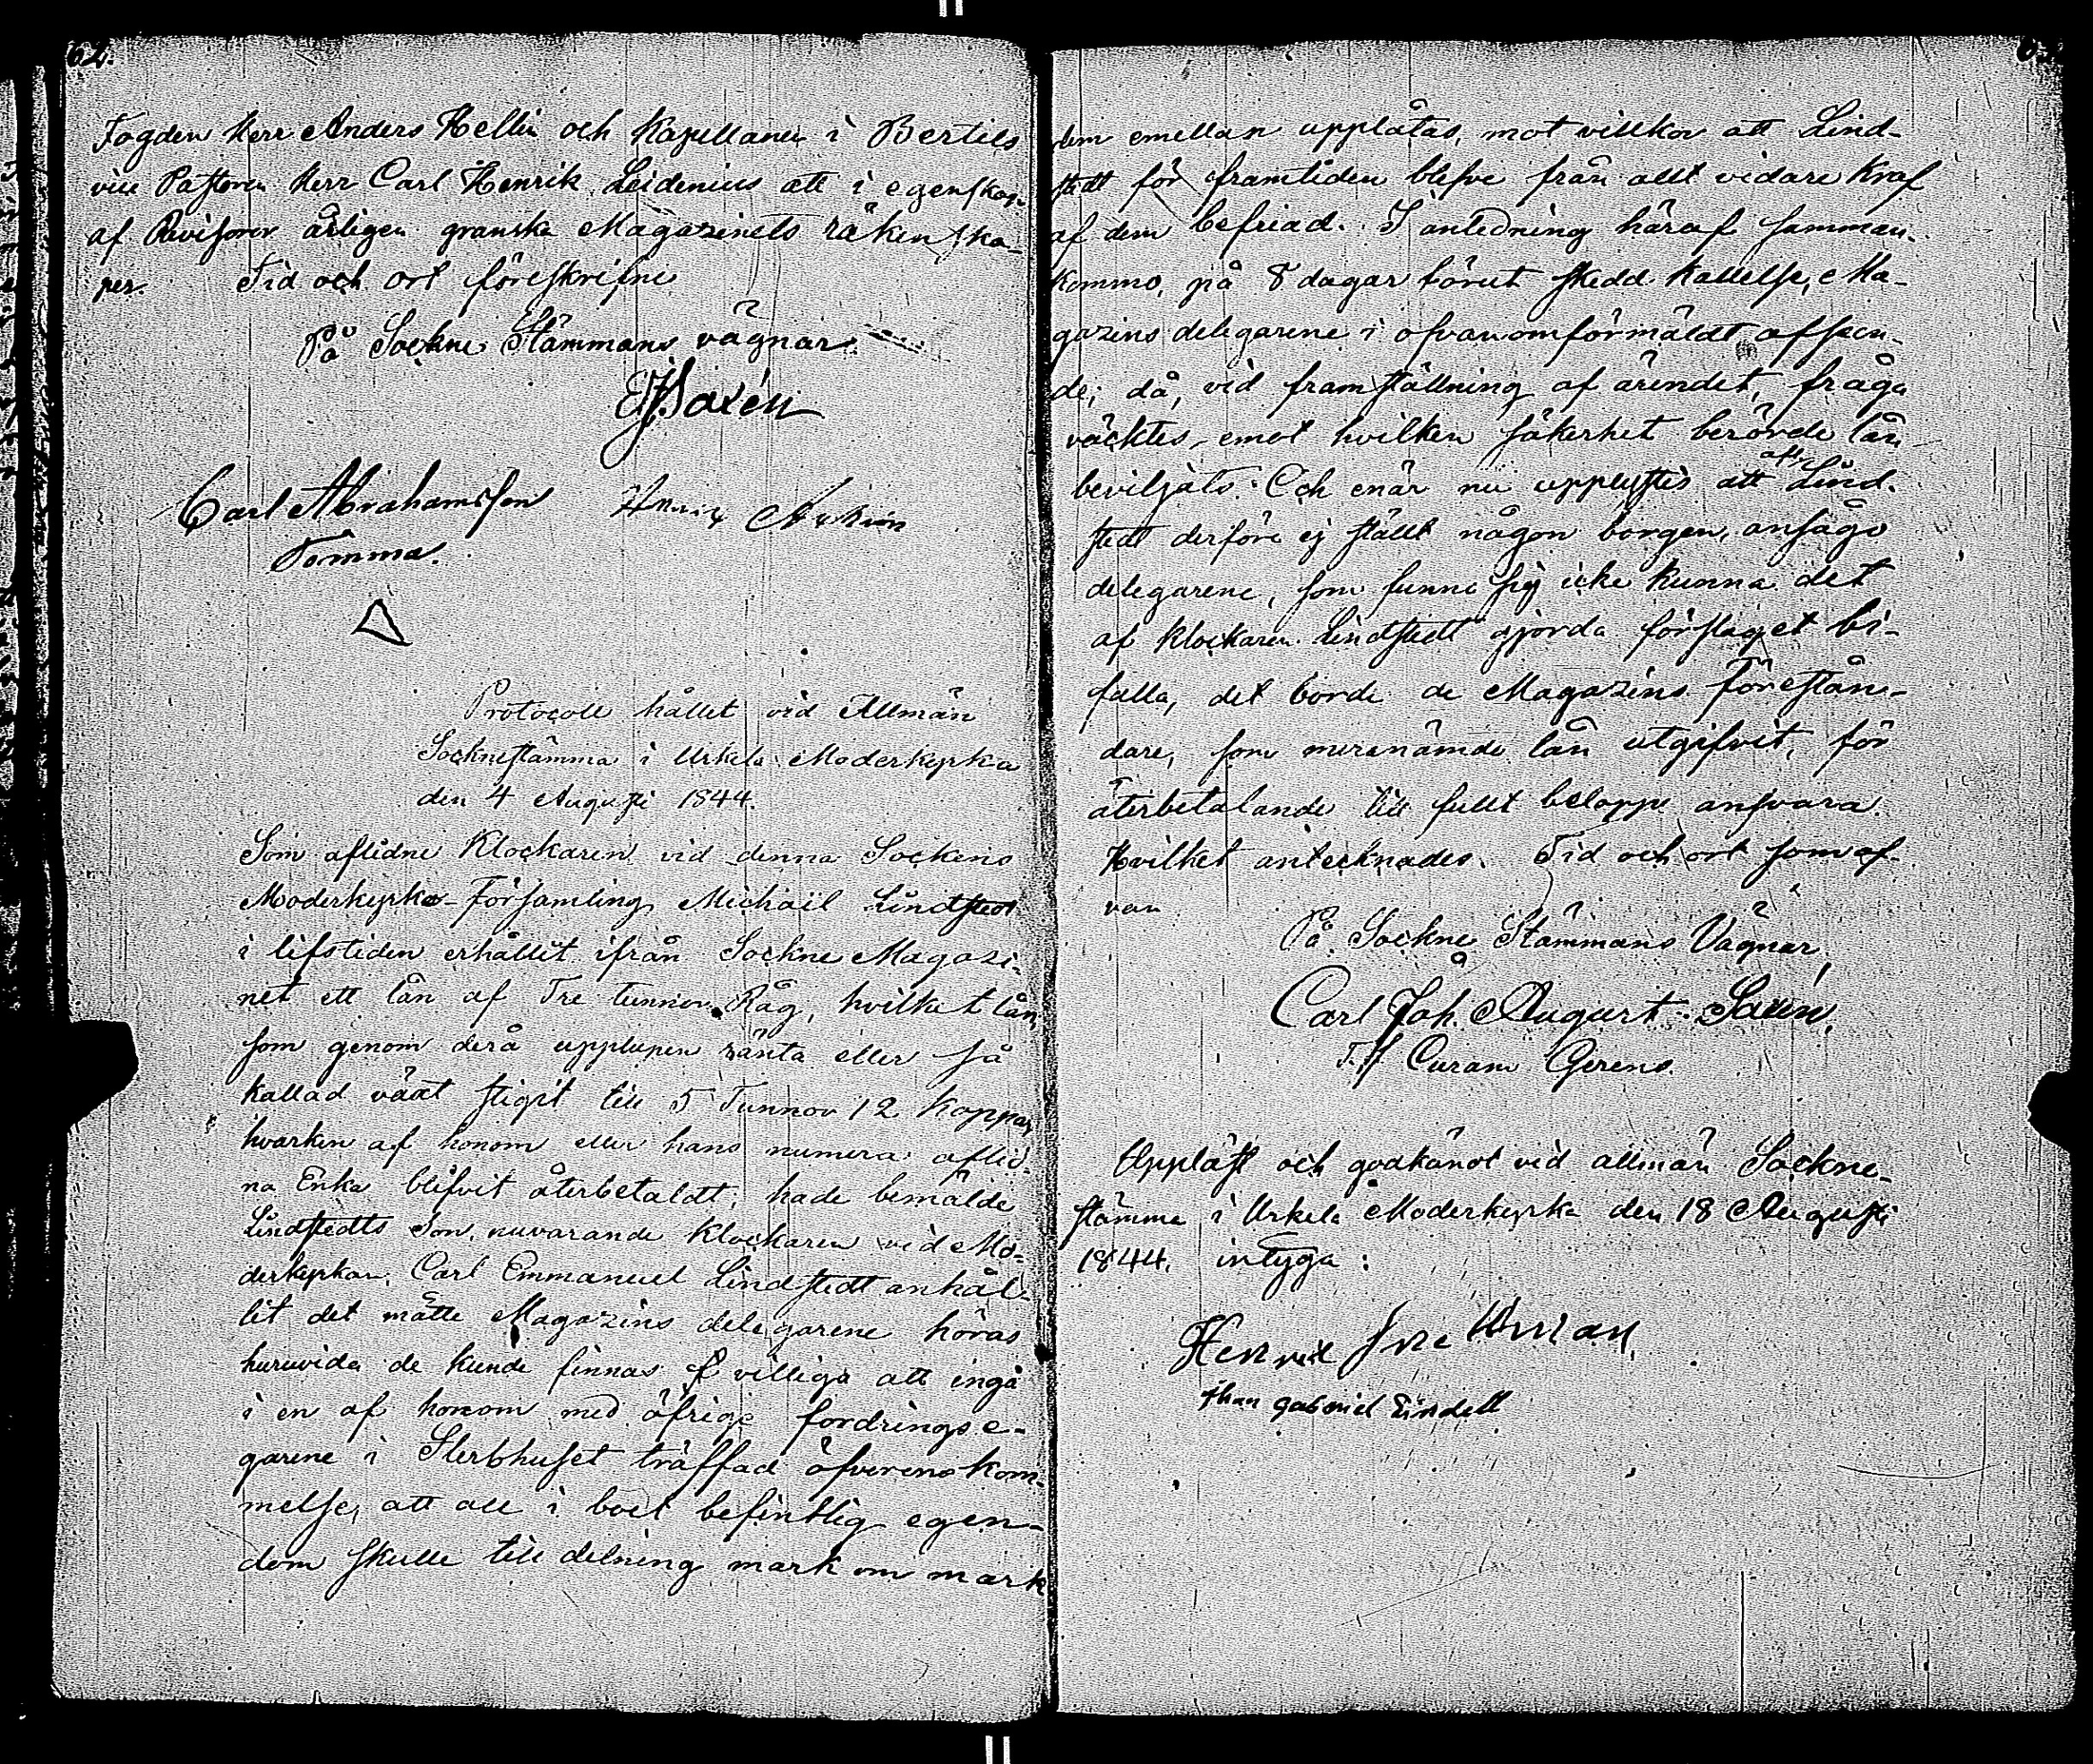 62.
Fogden Herr Anders Hellin och Kapellanen i Bertils
vill Pastoren Herr Carl Henrik Leidenius att i egenskap
af Revisorer årligen granska Magazinets räkenska-
per. Tid och ort föreskrifne
På Sockne Stämmans vägnar
Saxén
Carl Abrahamsson
Tomma.
Protocoll hållet vid Allmän
Socknestämma i Urkela Moderkyrka
den 4 Augusti 1844.
Som aflidne Klockaren vid denna Sockens
Moderkyrko-Församling Michaël Lindstedt
i lifstiden erhållit ifrån Sockne Magazi-
net ett lån af Tre tunnor Råg, hvilket lån,
som genom derå upplupen ränta eller så
kallad växt stigit till 5 Tunnor 12 kappar
hvarken af honom eller hans numera aflid-
na Enka blifvit återbetaldt; hade bemälde
Lindstedts Son, nuvarande Klockaren vid Mo-
derkyrkan, Carl Emmanuel Lindstedt anhål-
lit det måtte Magazins delegarene höras
huruvida de kunde finnas villiga att ingå
i en af honom med öfrige fordringse-
garene i Sterbhuset träffad öfverenskom-
melse, att all i boet befintlig egen-
dom skulle till delning mark om mark
dem emellan upplåtas, mot villkor att Lind-
stedt för framtiden blefve från allt vidare kraf
af dem befriad. I anledning häraf samman-
kommo, på 8 dagar förut skedd kallelse, Ma-
gazins delegarene i ofvanomförmäldt afseen-
de; då, vid framställning af ärendet, fråga
väcktes, emot hvilken säkerhet berörde lån
beviljats. Och enär nu upplystes att Lind-
stedt derföre ej ställt någon borgen, ansågo
delegarene, som funno sig icke kunna det
af Klockaren Lindstedt gjorda förslaget bi-
falla, det borde de Magazins Förestån-
dare, som merenämde lån utgifvit, för
återbetalande till fullt belopp ansvara.
Hvilket antecknades. Tid och ort som of-
van
På Sockne Stämmans Vägnar
Carl Joh. August Saxén,
Curam Gerens.
Uppläst och godkändt vid allmän Sockne-
stämma i Urkela Moderkyrka den 18 Augusti
1844, intyga:
Henrik
Johan Gabriel Lindell